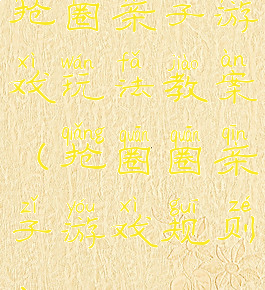 抢圈亲子游
xì wán fǎ jiào àn
戏玩法教案
qiǎng quān quān qīn
（抢圈圈亲
zǐ yóu xì guī zé
子游戏规则